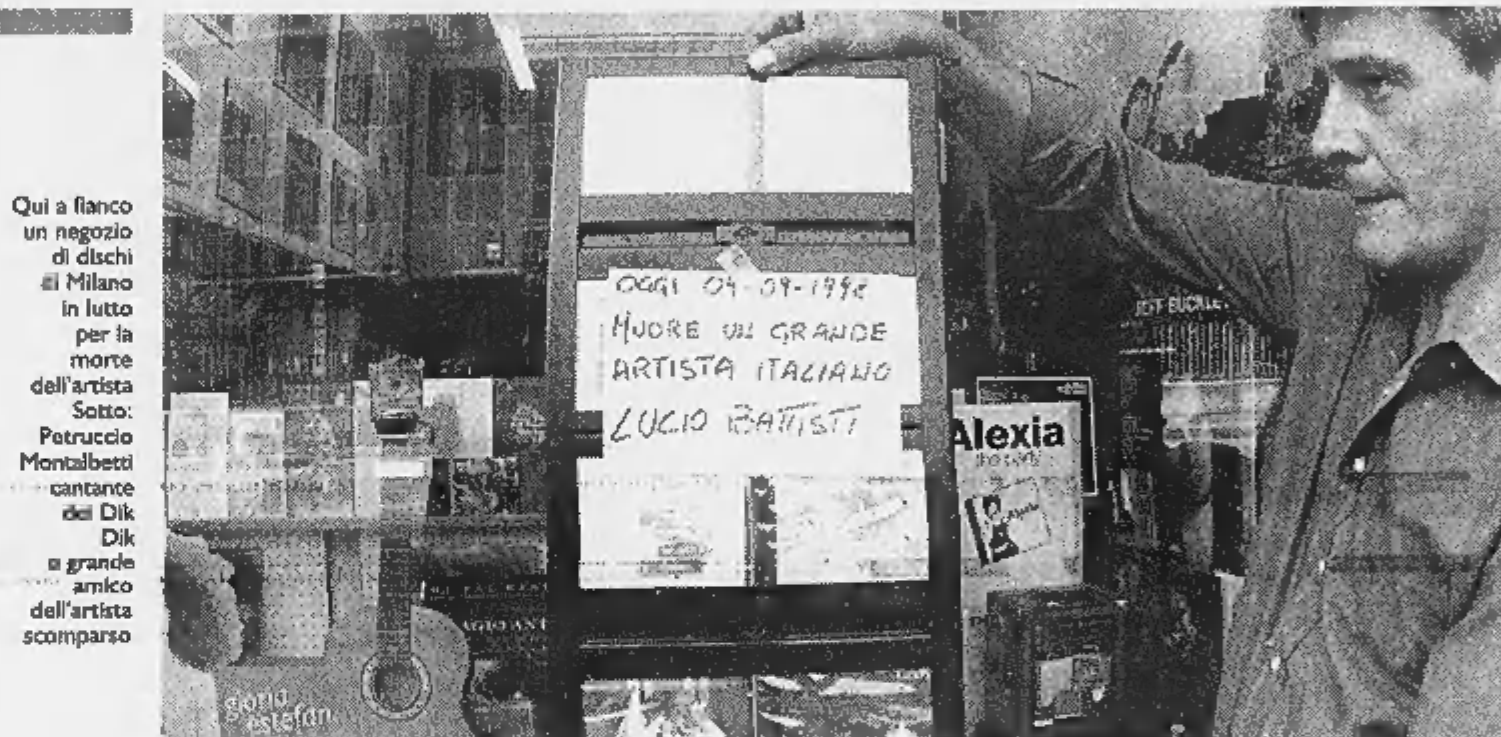 Qui a fianco
un negozio
di dischi
di Milano
in lutto
per la
morte
dell'artista
Sotto:
Petruccio
Montalbetti
cantante
dei Dik
Dik
e grande
amico
dell'artista
scomparso
OGGI 04-09-1998
MUORE UN GRANDE
ARTISTA ITALIANO
LUCIO BATTISTI
Alexia
the party
gloria
estefan